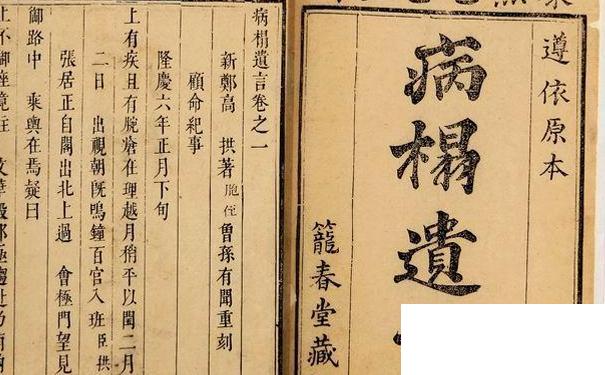 遵依原本
病榻遺
籠春堂藏
病榻遺言卷之一
新鄭高 拱著 胞侄 曾孫有聞重刻
顧命紀事
隆慶六年正月下旬
上有疾且有腕瘡在理越月稍平以閏二月
二日 出視朝旣鳴鐘百官入班臣拱
張居正自閣出北上過 會極門望見
御路中 乘輿在焉疑曰
上不御座竟往 文華殿耶